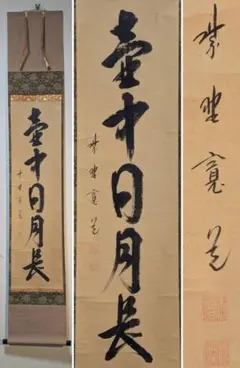 壷中日月長
紫野寛道
壷中日月長
紫野寛道
紫野寛道